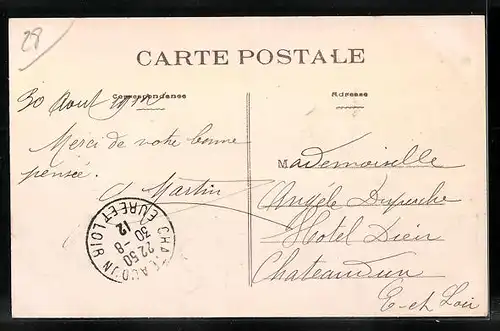 28
CARTE POSTALE
Correspondance
Adresse
30 Août 1912
Merci de votre bonne
pensée.
Martin
Mademoiselle
Angèle
Hotel Dieu
Chateaudun
E-et Loir
CHATEAUDUN
22 50
30 -8
12
EURE ET LOIR